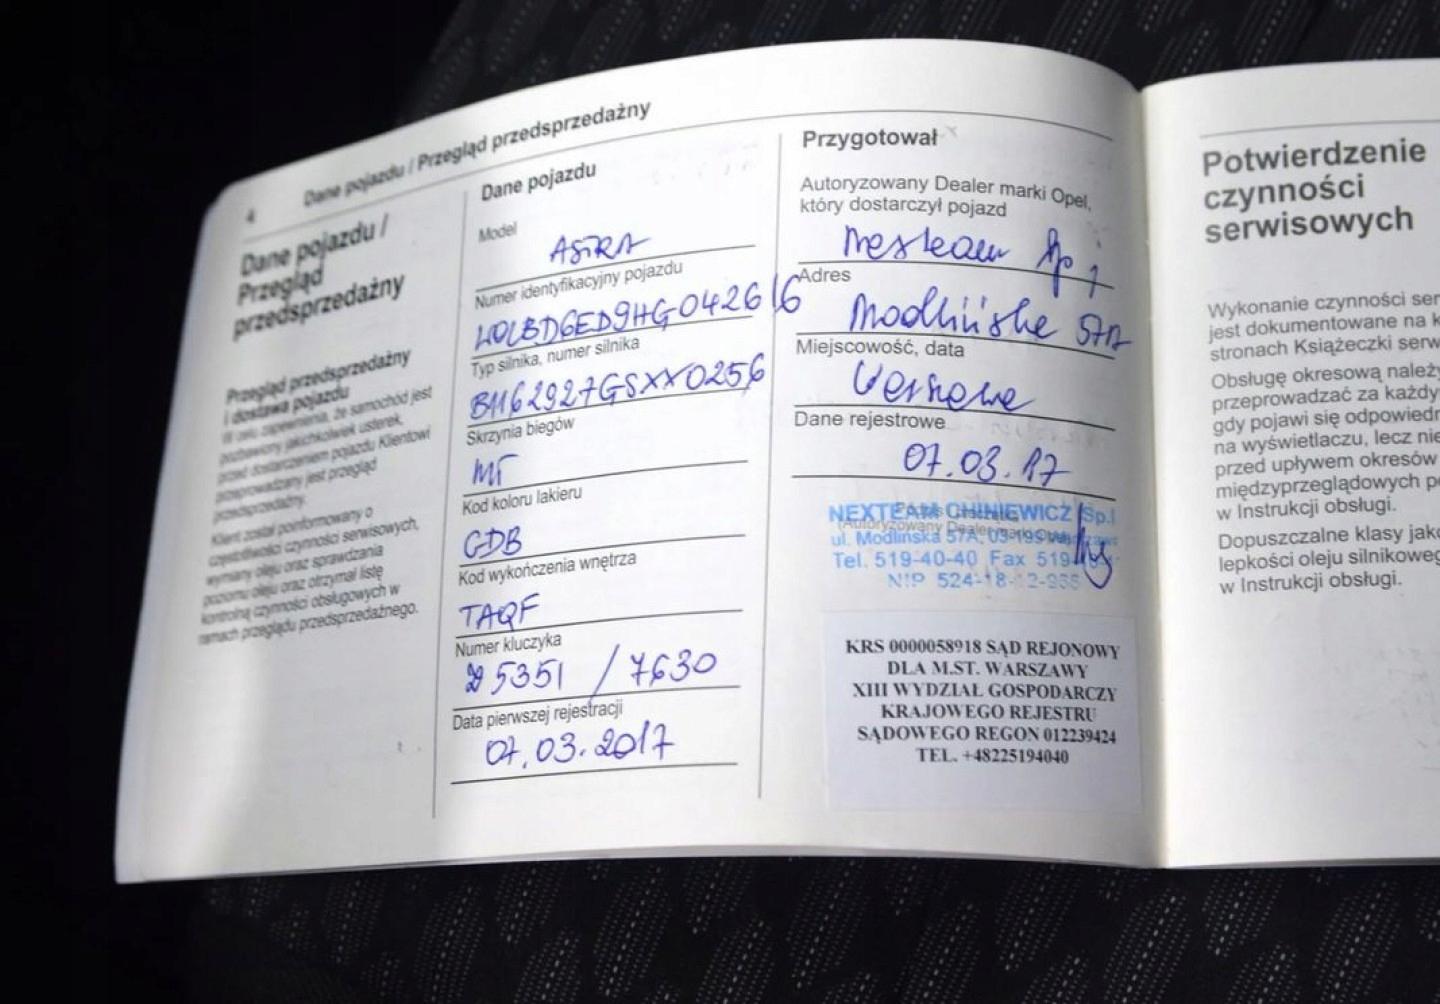 4
Dane pojazdu / Przegląd przedsprzedażny
Dane pojazdu /
Przegląd
przedsprzedażny
Przegląd przedsprzedażny
i dostawa pojazdu
W celu zapewnienia, że samochód jest
pozbawiony jakichkolwiek usterek,
przed dostarczeniem pojazdu Klientowi
przeprowadzany jest przegląd
przedsprzedażny.
Klient został poinformowany o
częstotliwości czynności serwisowych,
wymiany oleju oraz sprawdzania
poziomu oleju oraz otrzymał listę
kontrolną czynności obsługowych w
ramach przeglądu przedsprzedażnego.
Dane pojazdu
Model
ASTRA
Numer identyfikacyjny pojazdu
W0LBD6ED9HG042616
Typ silnika, numer silnika
B1162927GSXX0256
Skrzynia biegów
MT
Kod koloru lakieru
GDB
Kod wykończenia wnętrza
TAQF
Numer kluczyka
5351 / 7630
Data pierwszej rejestracji
07.03.2017
Przygotował
Autoryzowany Dealer marki Opel,
który dostarczył pojazd
Nexteam Sp.
Adres
Modlińska 57A
Miejscowość, data
Warszawa
Dane rejestrowe
07.03.17
NEXTEAM CHINIEWICZ Sp.j
ul. Modlińska 57A, 03-199
Tel. 519-40-40 Fax 519
NIP 524-18-12-
KRS 0000058918 SĄD REJONOWY
DLA M.ST. WARSZAWY
XIII WYDZIAŁ GOSPODARCZY
KRAJOWEGO REJESTRU
SĄDOWEGO REGON 012239424
TEL. +48225194040
Potwierdzenie
czynności
serwisowych
Wykonanie czynności ser
jest dokumentowane na k
stronach Książeczki serw
Obsługę okresową należy
przeprowadzać za każdy
gdy pojawi się odpowiedn
na wyświetlaczu, lecz nie
przed upływem okresów
międzyprzeglądowych po
w Instrukcji obsługi.
Dopuszczalne klasy jako
lepkości oleju silnikoweg
w Instrukcji obsługi.